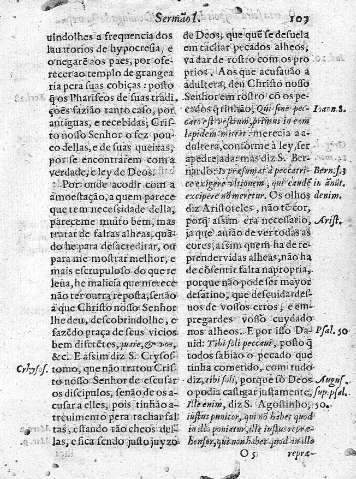 Sermão I. 103
uindolhes a frequencia dos
lauatorios de hypocresia, e
o negarẽ aos paes, por of-
ferecer ao templo de grangea
ria pera suas cobiças: posto
q̃ os Phariseos de suas tradi
ções fazião tanto caso, por
antiguas, e recebidas; Chris
to nosso Senhor o fez pou-
co dellas, e de suas queixas,
por se encontrarem com a
verdade, e ley de Deos.
Por onde acodir com a
amoestação, a quem parece
que tem necessidade della,
pareceme muito bem, mas
tratar de faltas alheas, quã-
do he pa desacreditar, ou
para me mostrar melhor, e
mais escrupuloso do que re
leua, he malicia que merece
não ter outra reposta, senão
a que Christo nosso Senhor
lhe deu, descobrindolhe, e
fazẽdo praça de seus vicios
bem differẽtes, guaie, & vox,
&c. E assim diz S. Crysos-
Crhysos.
tomo, que não tratou Cris
to nosso Senhor de escusar
os discipulos, senão de os a-
cusar a elles, pois tinhão a-
treuimento pera tachar fal
tas, estando tão cheos del-
las, e fica sendo justo juyzo
de Deos, que quẽ se desuela
em tachar pecados alheos,
va dar de rostro com os pro
prios. Aos que acusauão a
adultera, deu Christo nosso
Senhor em rostro cõ os pe-
cados q̃ tinhão; Qui sine pec-
Ioann. 8.
cato est vestrum, primus in eam
lapidem mittat: merecia a a-
dultera, conforme a ley, ser
apedrejada: mas diz S. Ber-
nardo: Is præsumat à peccatri-
Bern. f. 3
ce exigere vltionem, qui eandẽ in
in anũt.
excipere nõ meretur. Os olhos
denim.
diz Aristoteles, não tẽ cor,
porq̃ assim era necessario,
Arist.
ja que auião de ver todas as
cores, assim quem ha de re-
prender vidas alheas, não ha
de cõsentir falta na propria,
porque não pode ser mayor
desatino, que descuidardes-
nos de vossos erros; e em-
pregardes vosso cuydado
nos alheos. E por isso Da-
Psal. 50
uid: Tibi soli peccaui, posto q̃
todos sabião o pecado que
tinha cometido, com tudo
diz, tibi soli, porque só Deos
Augus.
o podia castigar justamente,
sup. psal.
Ille enim, diz S. Agostinho,
50.
iustus punitor, qui nõ habet quod
in illo poniatur, ille iustus repre-
hensor, qui non habet quod in illo
O 5 repræ-